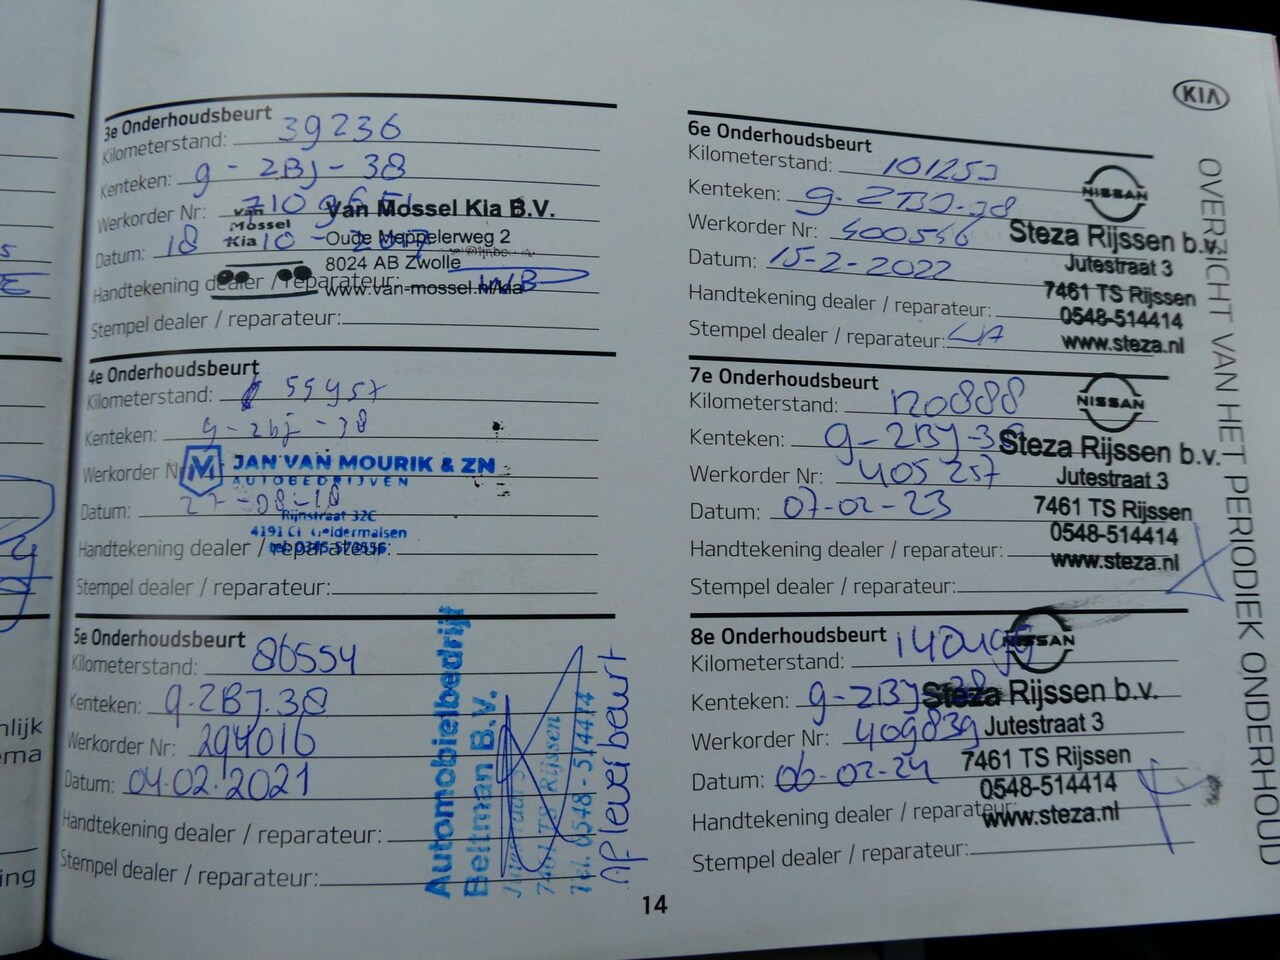 KIA
OVERZICHT VAN HET PERIODIEK ONDERHOUD
3e Onderhoudsbeurt
Kilometerstand: 39236
Kenteken: g-2BJ-38
Werkorder Nr:
Datum: 18-10-
Handtekening dealer / reparateur:
Stempel dealer / reparateur:
van Mossel Kia
Van Mossel Kia B.V.
Oude Meppelerweg 2
8024 AB Zwolle
www.van-mossel.nl/kia
4e Onderhoudsbeurt
Kilometerstand: 55957
Kenteken: g-2bj-38
Werkorder Nr
Datum: 27-08-18
Handtekening dealer / reparateur:
Stempel dealer / reparateur:
JAN VAN MOURIK & ZN
AUTOBEDRIJVEN
Rijnstraat 32C
4191 CL Geldermalsen
5e Onderhoudsbeurt
Kilometerstand: 86554
Kenteken: g-2BJ-38
Werkorder Nr: 294016
Datum: 04-02-2021
Handtekening dealer / reparateur:
Stempel dealer / reparateur:
Automobielbedrijf
Beltman B.V.
7461 TS Rijssen
Tel. 0548-514414
Afleverbeurt
6e Onderhoudsbeurt
Kilometerstand: 101253
Kenteken: g-2BJ-38
Werkorder Nr: 400546
Datum: 15-2-2022
Handtekening dealer / reparateur:
Stempel dealer / reparateur:
NISSAN
Steza Rijssen b.v.
Jutestraat 3
7461 TS Rijssen
0548-514414
www.steza.nl
7e Onderhoudsbeurt
Kilometerstand: 120888
Kenteken: g-2BJ-38
Werkorder Nr: 405257
Datum: 07-02-23
Handtekening dealer / reparateur:
Stempel dealer / reparateur:
NISSAN
Steza Rijssen b.v.
Jutestraat 3
7461 TS Rijssen
0548-514414
www.steza.nl
8e Onderhoudsbeurt
Kilometerstand:
Kenteken: g-2BJ-38
Werkorder Nr: 409839
Datum: 06-02-24
Handtekening dealer / reparateur:
Stempel dealer / reparateur:
NISSAN
Steza Rijssen b.v.
Jutestraat 3
7461 TS Rijssen
0548-514414
www.steza.nl
14